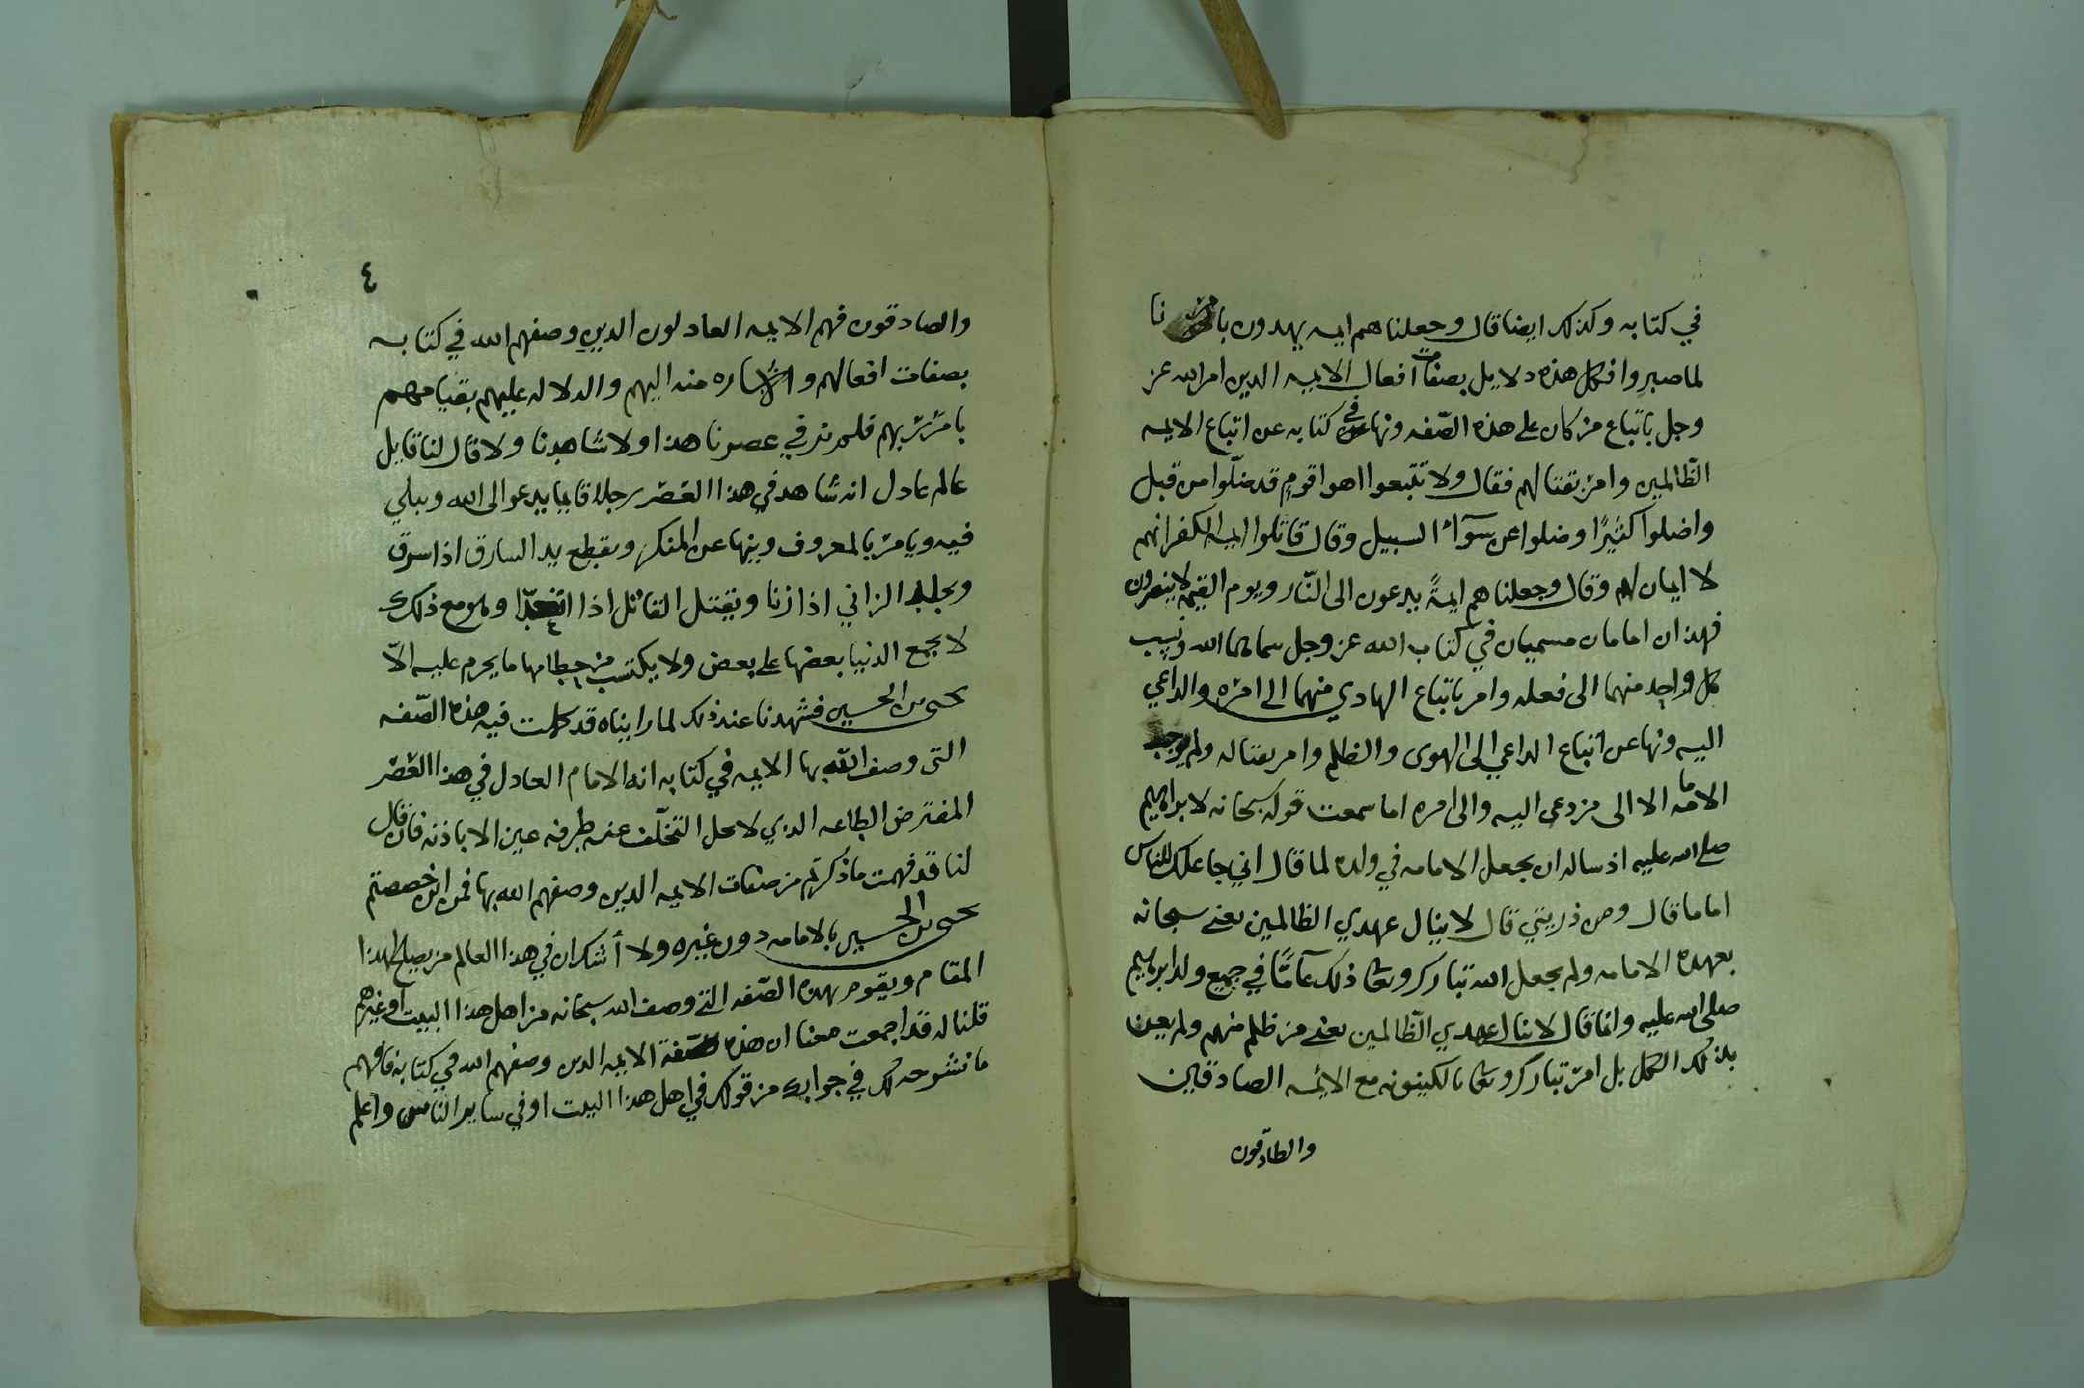 في كتابه وكذلك ايضا قال وجعلناهم ايمه يهدون بامرنا
لما صبروا فكل هذه دلايل بصفات افعال الايمه الذين امر الله عز
وجل باتباع من كان على هذه الصّفه ونها في كتابه عن اتباع الايمه
الظّالمين وامر بقتالهم فقال ولا تتبعوا اهوا قومٍ قد ضلّوا من قبل
واضلوا كثيرًا وضلوا عن سوآء السبيل وقال قاتلوا ايمة الكفر انهم
لا ايمان لهم وقال وجعلناهم ايمةً يدعون الى النّار ويوم القيمه لا ينصرون
فهذان امامان مسميان في كتاب الله عز وجل سماهما الله ونسب
كل واحد منهما الى فعله وامر باتباع الهادي منهما الى امره والداعي
اليه ونها عن اتباع الداعي الى الهوى والظلم وامر بقتاله ولم يوجب
الامامه الا الى من دعى اليه والى امره اما سمعت قوله سبحانه لابراهيم
صلى الله عليه اذ ساله ان يجعل الامامه في ولده لما قال اني جاعلك للناس
اماما قال ومن ذريتي قال لا ينال عهدي الظالمين يعني سبحانه
بعهده الامامه ولم يجعل الله تبارك وتعا ذلك عآمًّا في جميع ولد ابراهيم
صلى الله عليه وانما قال لا ينال عهدي الظّالمين يعني من ظلم منهم ولم يعن
بذلك الكل بل امر تبارك وتعا بالكينونه مع الائمه الصادقين
والصّادقون
٤
والصادقون فهم الايمه العادلون الذين وصفهم الله في كتابه
بصفات افعالهم والاشاره منه اليهم والدلاله عليهم بقيامهم
بامر ربهم فلم نر في عصرنا هذا ولا شاهدنا ولا قال لنا قايل
عالم عادل انه شاهد في هذا العصر رجلا قايما يدعوا الى الله ويبلي
فيه ويامر بالمعروف وينها عن المنكر ويقطع يد السارق اذا سرق
ويجلد الزاني اذا زنا ويقتل القاتل اذا وهو مع ذلك
لا يجمع الدنيا بعضها على بعض ولا يكتسب من حطامها ما يحرم عليه الّا
يحيى بن الحسين فشهدنا عند ذلك لما راينباه قد كملت فيه هذه الصّفه
التي وصف اللّه بها الايمه في كتابه انه الامام العادل في هذا العصر
المفترض الطاعه الذي لا يحل التخلّف عنه طرفة عين الا باذنه فان قال
لنا قد فهمت ما ذكرتم من صفات الايمه الذين وصفهم الله بها فمن اين خصصتم
يحيى بن الحسين بالامامه دون غيره ولا أشك ان في هذا العالم من يصلح لهذا
المقام ويقوم بهذه الصّفه التي وصف الله سبحانه من اهل هذا البيت او غيرهم
قلنا له قد اجمعت معنا ان هذه صّفة الايمه الذين وصفهم الله في كتابه فافهم
ما نشرحه لك في جوابك من قولك في اهل هذا البيت او في ساير النّاس واعلم